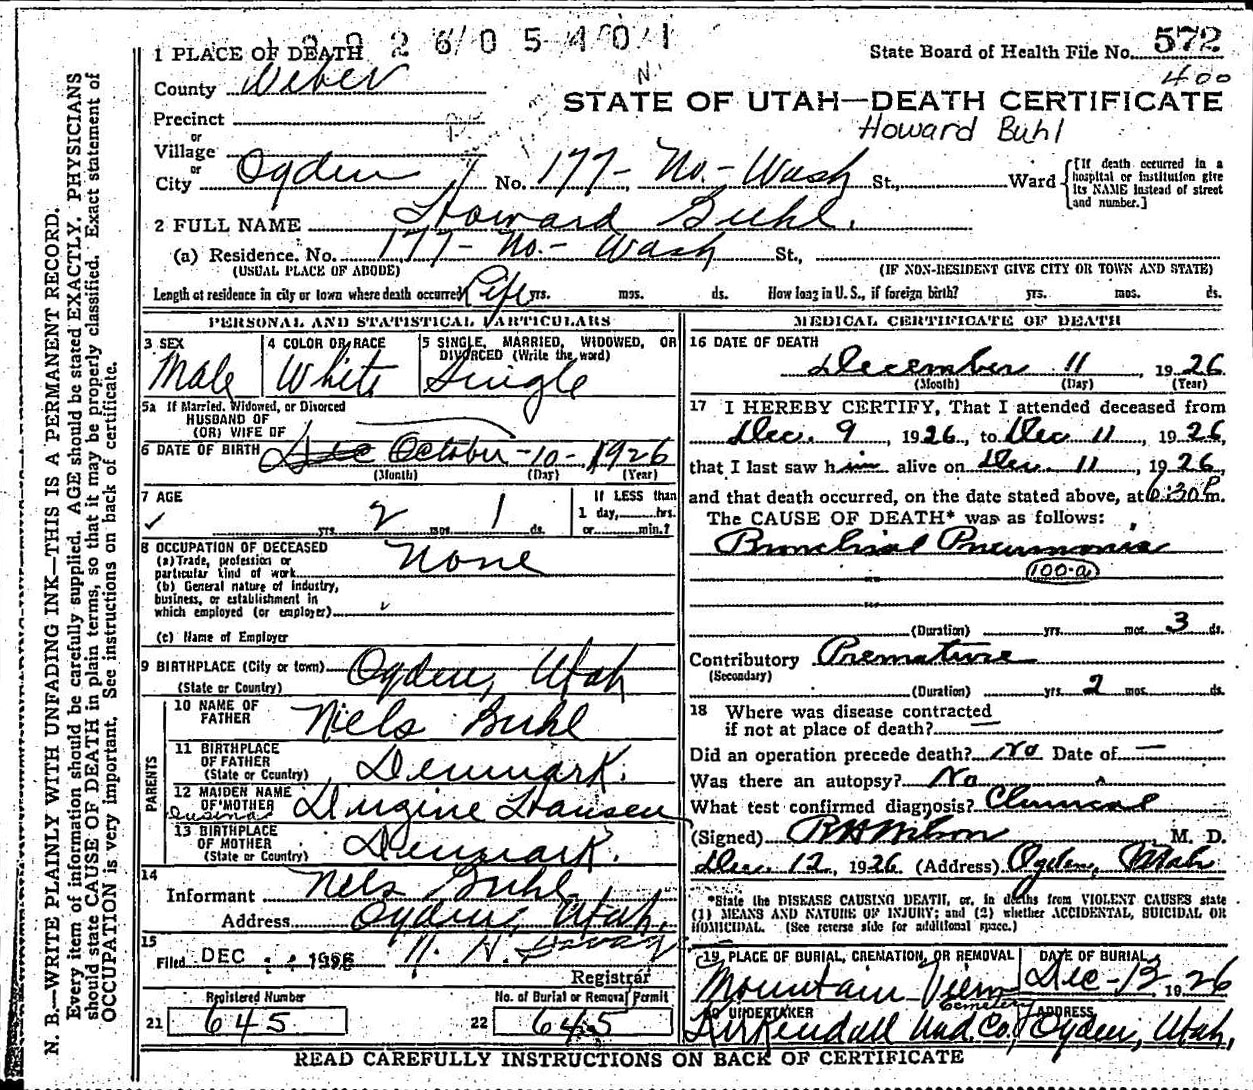 1 PLACE OF DEATH 26 05401 State Board of Health File No. 572
400
County Weber
STATE OF UTAH—DEATH CERTIFICATE
Howard Buhl
Precinct
or
Village
or
City Ogden No. 177- No.- Wash St., Ward {[If death occurred in a hospital or institution give its NAME instead of street and number.]
2 FULL NAME Howard Buhl.
(a) Residence. No. 177- No.- Wash St.,
(USUAL PLACE OF ABODE) (IF NON-RESIDENT GIVE CITY OR TOWN AND STATE)
Length of residence in city or town where death occurred Life yrs. mos. ds. How long in U. S., if foreign birth? yrs. mos. ds.
PERSONAL AND STATISTICAL PARTICULARS
3 SEX 4 COLOR OR RACE 5 SINGLE, MARRIED, WIDOWED, OR DIVORCED (Write the word)
Male White Single
5a If Married, Widowed, or Divorced
HUSBAND OF
(OR) WIFE OF
6 DATE OF BIRTH Dec October -10- 1926
(Month) (Day) (Year)
7 AGE If LESS than
yrs. 2 mos. 1 ds. 1 day, hrs.
or min.?
8 OCCUPATION OF DECEASED
(a) Trade, profession or
particular kind of work None
(b) General nature of industry,
business, or establishment in
which employed (or employer)
(c) Name of Employer
9 BIRTHPLACE (City or town) Ogden, Utah
(State or Country)
PARENTS
10 NAME OF
FATHER Niels Buhl
11 BIRTHPLACE
OF FATHER
(State or Country) Denmark.
12 MAIDEN NAME
OF MOTHER Hansen
13 BIRTHPLACE
OF MOTHER
(State or Country) Denmark.
14
Informant Nels Buhl
Address Ogden, Utah,
15
Filed DEC 1926
Registrar
Registered Number No. of Burial or Removal Permit
21 645 22 645
MEDICAL CERTIFICATE OF DEATH
16 DATE OF DEATH
December 11, 1926
(Month) (Day) (Year)
17 I HEREBY CERTIFY, That I attended deceased from
Dec. 9, 1926, to Dec 11, 1926,
that I last saw him alive on Dec. 11, 1926,
and that death occurred, on the date stated above, at 6:30 P m.
The CAUSE OF DEATH* was as follows:
Bronchial Pneumonia
100-a
(Duration) yrs. mos. 3 ds.
Contributory Premature
(Secondary)
(Duration) yrs. 2 mos. ds.
18 Where was disease contracted
if not at place of death? —
Did an operation precede death? No Date of —
Was there an autopsy? No
What test confirmed diagnosis? Clinical
(Signed) R H Wilson M. D.
Dec. 12, 1926 (Address) Ogden, Utah
*State the DISEASE CAUSING DEATH, or, in deaths from VIOLENT CAUSES state
(1) MEANS AND NATURE OF INJURY; and (2) whether ACCIDENTAL, SUICIDAL OR
HOMICIDAL. (See reverse side for additional space.)
19 PLACE OF BURIAL, CREMATION, OR REMOVAL DATE OF BURIAL
Mountain View Cemetery Dec-13 1926
20 UNDERTAKER ADDRESS
Kirkendall Und. Co. Ogden, Utah,
READ CAREFULLY INSTRUCTIONS ON BACK OF CERTIFICATE
N. B.—WRITE PLAINLY WITH UNFADING INK—THIS IS A PERMANENT RECORD.
Every item of information should be carefully supplied. AGE should be stated EXACTLY. PHYSICIANS
should state CAUSE OF DEATH in plain terms, so that it may be properly classified. Exact statement of
OCCUPATION is very important. See instructions on back of certificate.